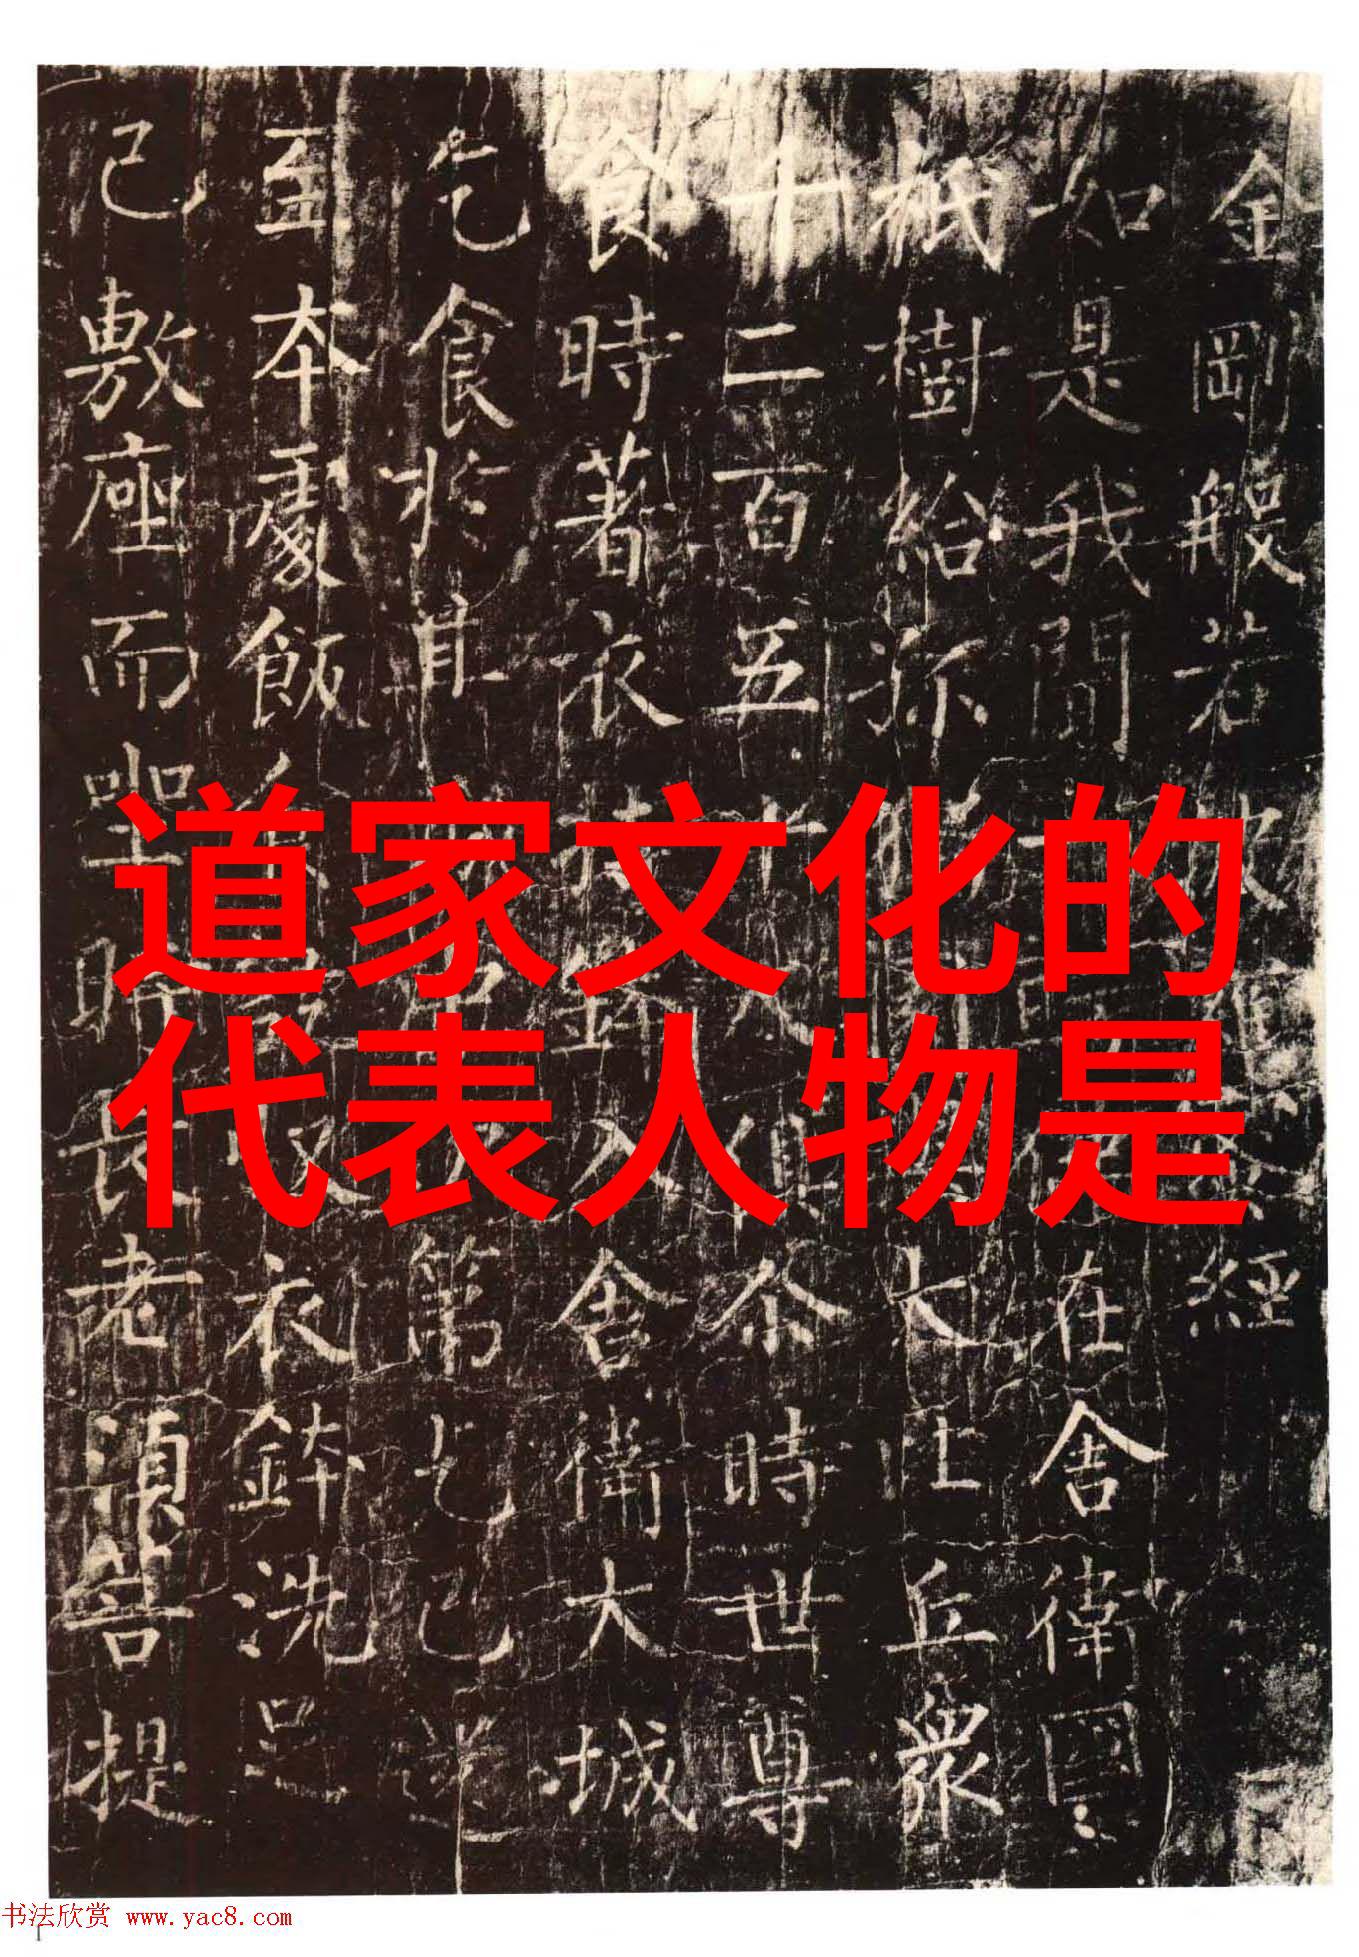 金剛般若經
如是我聞在舍衛國
祇樹給孤大比丘衆
十二百五十人俱尒時世尊
食時著衣持鉢入舍衛大城
乞食於其第乞已還
至本處飯衣鉢洗足
已敷座而坐時長老須菩提
道家文化的
代表人物是
书法欣赏 www.yac8.com